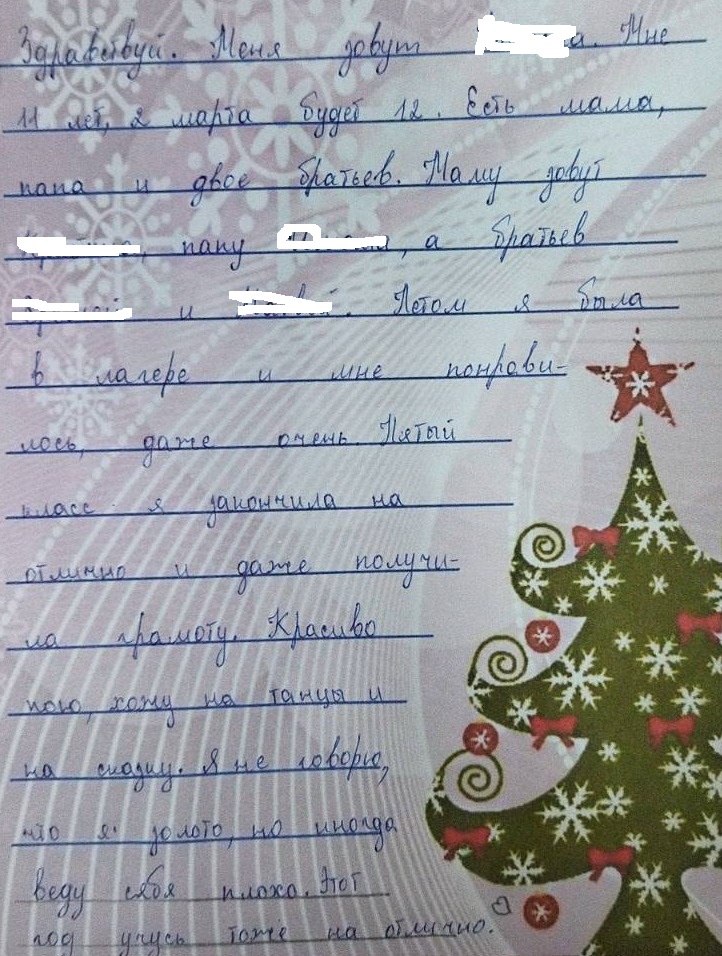 Здравствуй. Меня зовут а. Мне
11 лет, 2 марта будет 12. Есть мама,
папа и двое братьев. Маму зовут
, папу , а братьев
и . Летом я была
в лагере и мне понрави-
лось, даже очень. Пятый
класс я закончила на
отлично и даже получи-
ла грамоту. Красиво
пою, хожу на танцы и
на сказку. Я не говорю,
что я золото, но иногда
веду себя плохо. Этот
год учусь тоже на отлично.